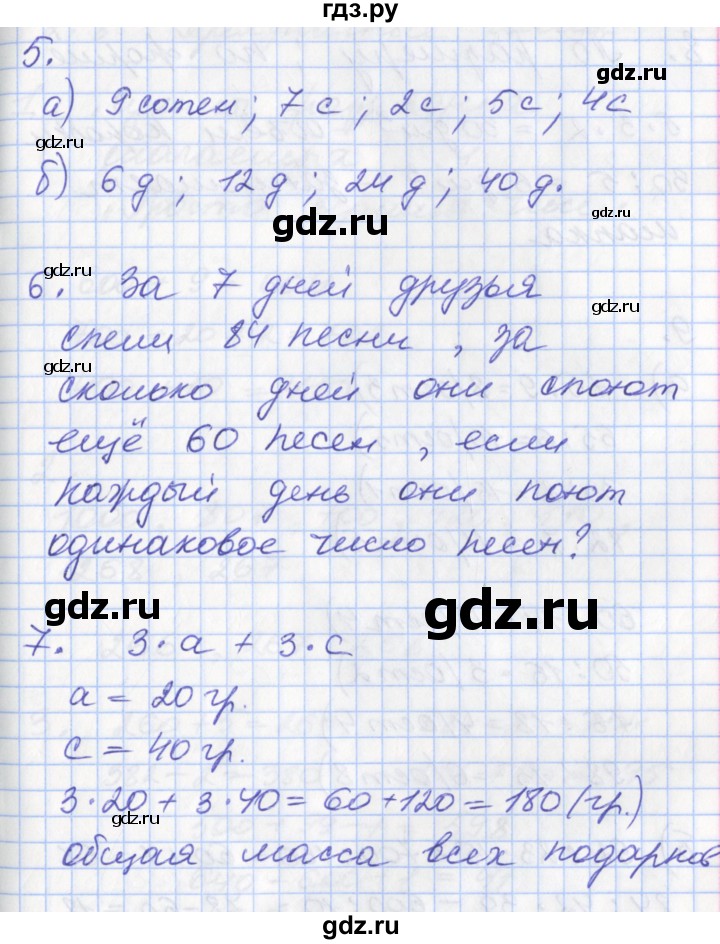 гдз.ру
5.
а) 9 сотен; 7 с; 2 с; 5 с; 4 с
gdz.ru
б) 6 д; 12 д; 24 д; 40 д.
gdz.ru
gdz.ru
gdz.ru
6. За 7 дней друзья
gdz.ru
спели 84 песни, за
gdz.ru
сколько дней они споют
ещё 60 песен, если
каждый день они поют
одинаковое число песен?
gdz.ru
gdz.ru
7. 3·а + 3·с
а = 20 гр.
с = 40 гр.
3·20 + 3·40 = 60 + 120 = 180 (гр.)
gdz.ru
gdz.ru
общая масса всех подарков
gdz.ru